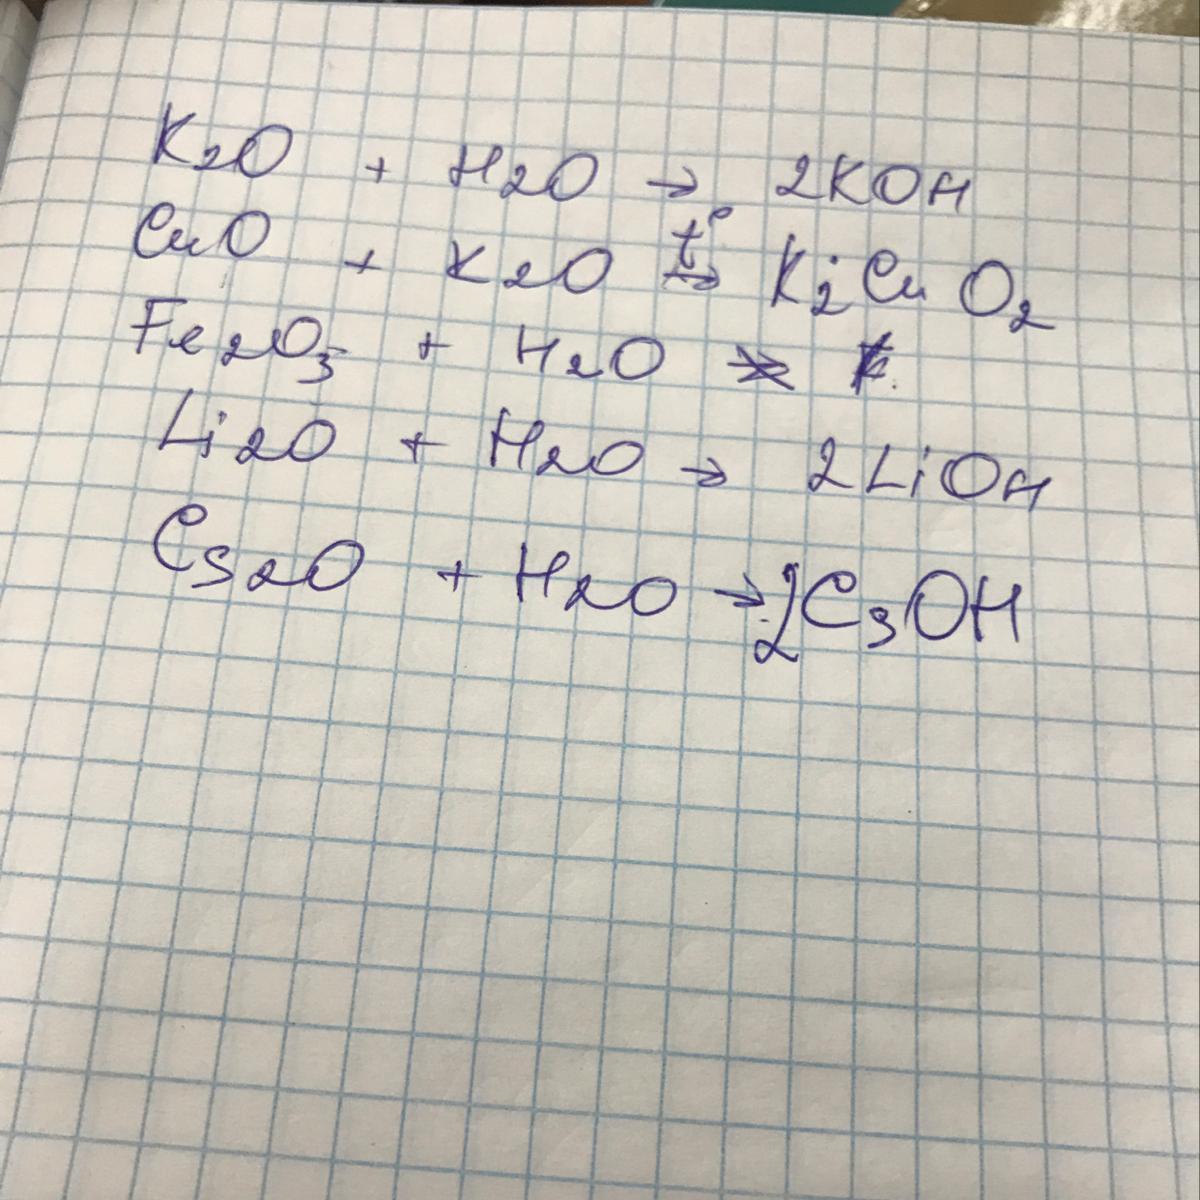 K2O + H2O → 2KOH
CuO + K2O t°→ K2CuO2
Fe2O3 + H2O ↛
Li2O + H2O → 2LiOH
Cs2O + H2O → 2CsOH